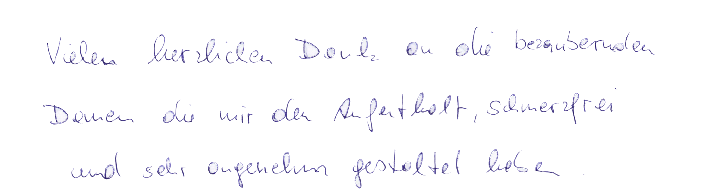 Vielen herzlichen Dank an die bezaubernden
Damen die mir den Aufenthalt, schmerzfrei
und sehr angenehm gestaltet haben